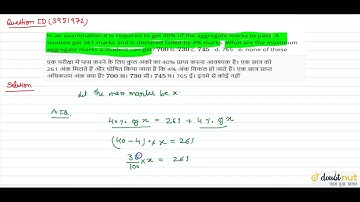 Question ID (3951972)
In an examination it is required to get 40% of the aggregate marks to pass. A
student get 261 marks and is declared failed by 4% marks. What are the maximum
aggregate marks a student can get? 700 b. 730 c. 745 d. 765 e. none of these
एक परीक्षा में पास करने के लिए कुल अंकों का 40% प्राप्त करना आवश्यक है। एक छात्र को
261 अंक मिलते हैं और घोषित किया जाता है कि 4% अंक विफल हो जाते हैं। एक छात्र प्राप्त
अधिकतम अंक क्या हैं? 700 ख। 730 सी। 745 घ। 765 ई। इनमें से कोई नहीं
Solution
let the max marks be x.
A.T.Q
40% of x = 261 + 4% of x
(40-4)% x = 261
36/100 × x = 261
doubtnut